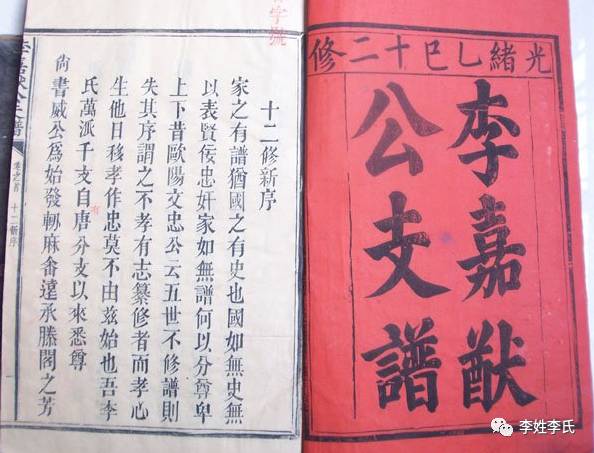 光緒乙巳十二修
李嘉猷
公支譜
字號
十二修新序
家之有譜猶國之有史也國如無史無
以表賢佞忠奸家如無譜何以分尊卑
上下昔歐陽文忠公云五世不修譜則
失其序謂之不孝有志纂修者而孝心
生他日移孝作忠莫不由茲始也吾李
氏萬派千支自唐分支以來悉尊
尚書威公爲始發軔麻畲遠承滕閣之芳
李嘉猷公支譜
卷之首 十二新序
李姓李氏